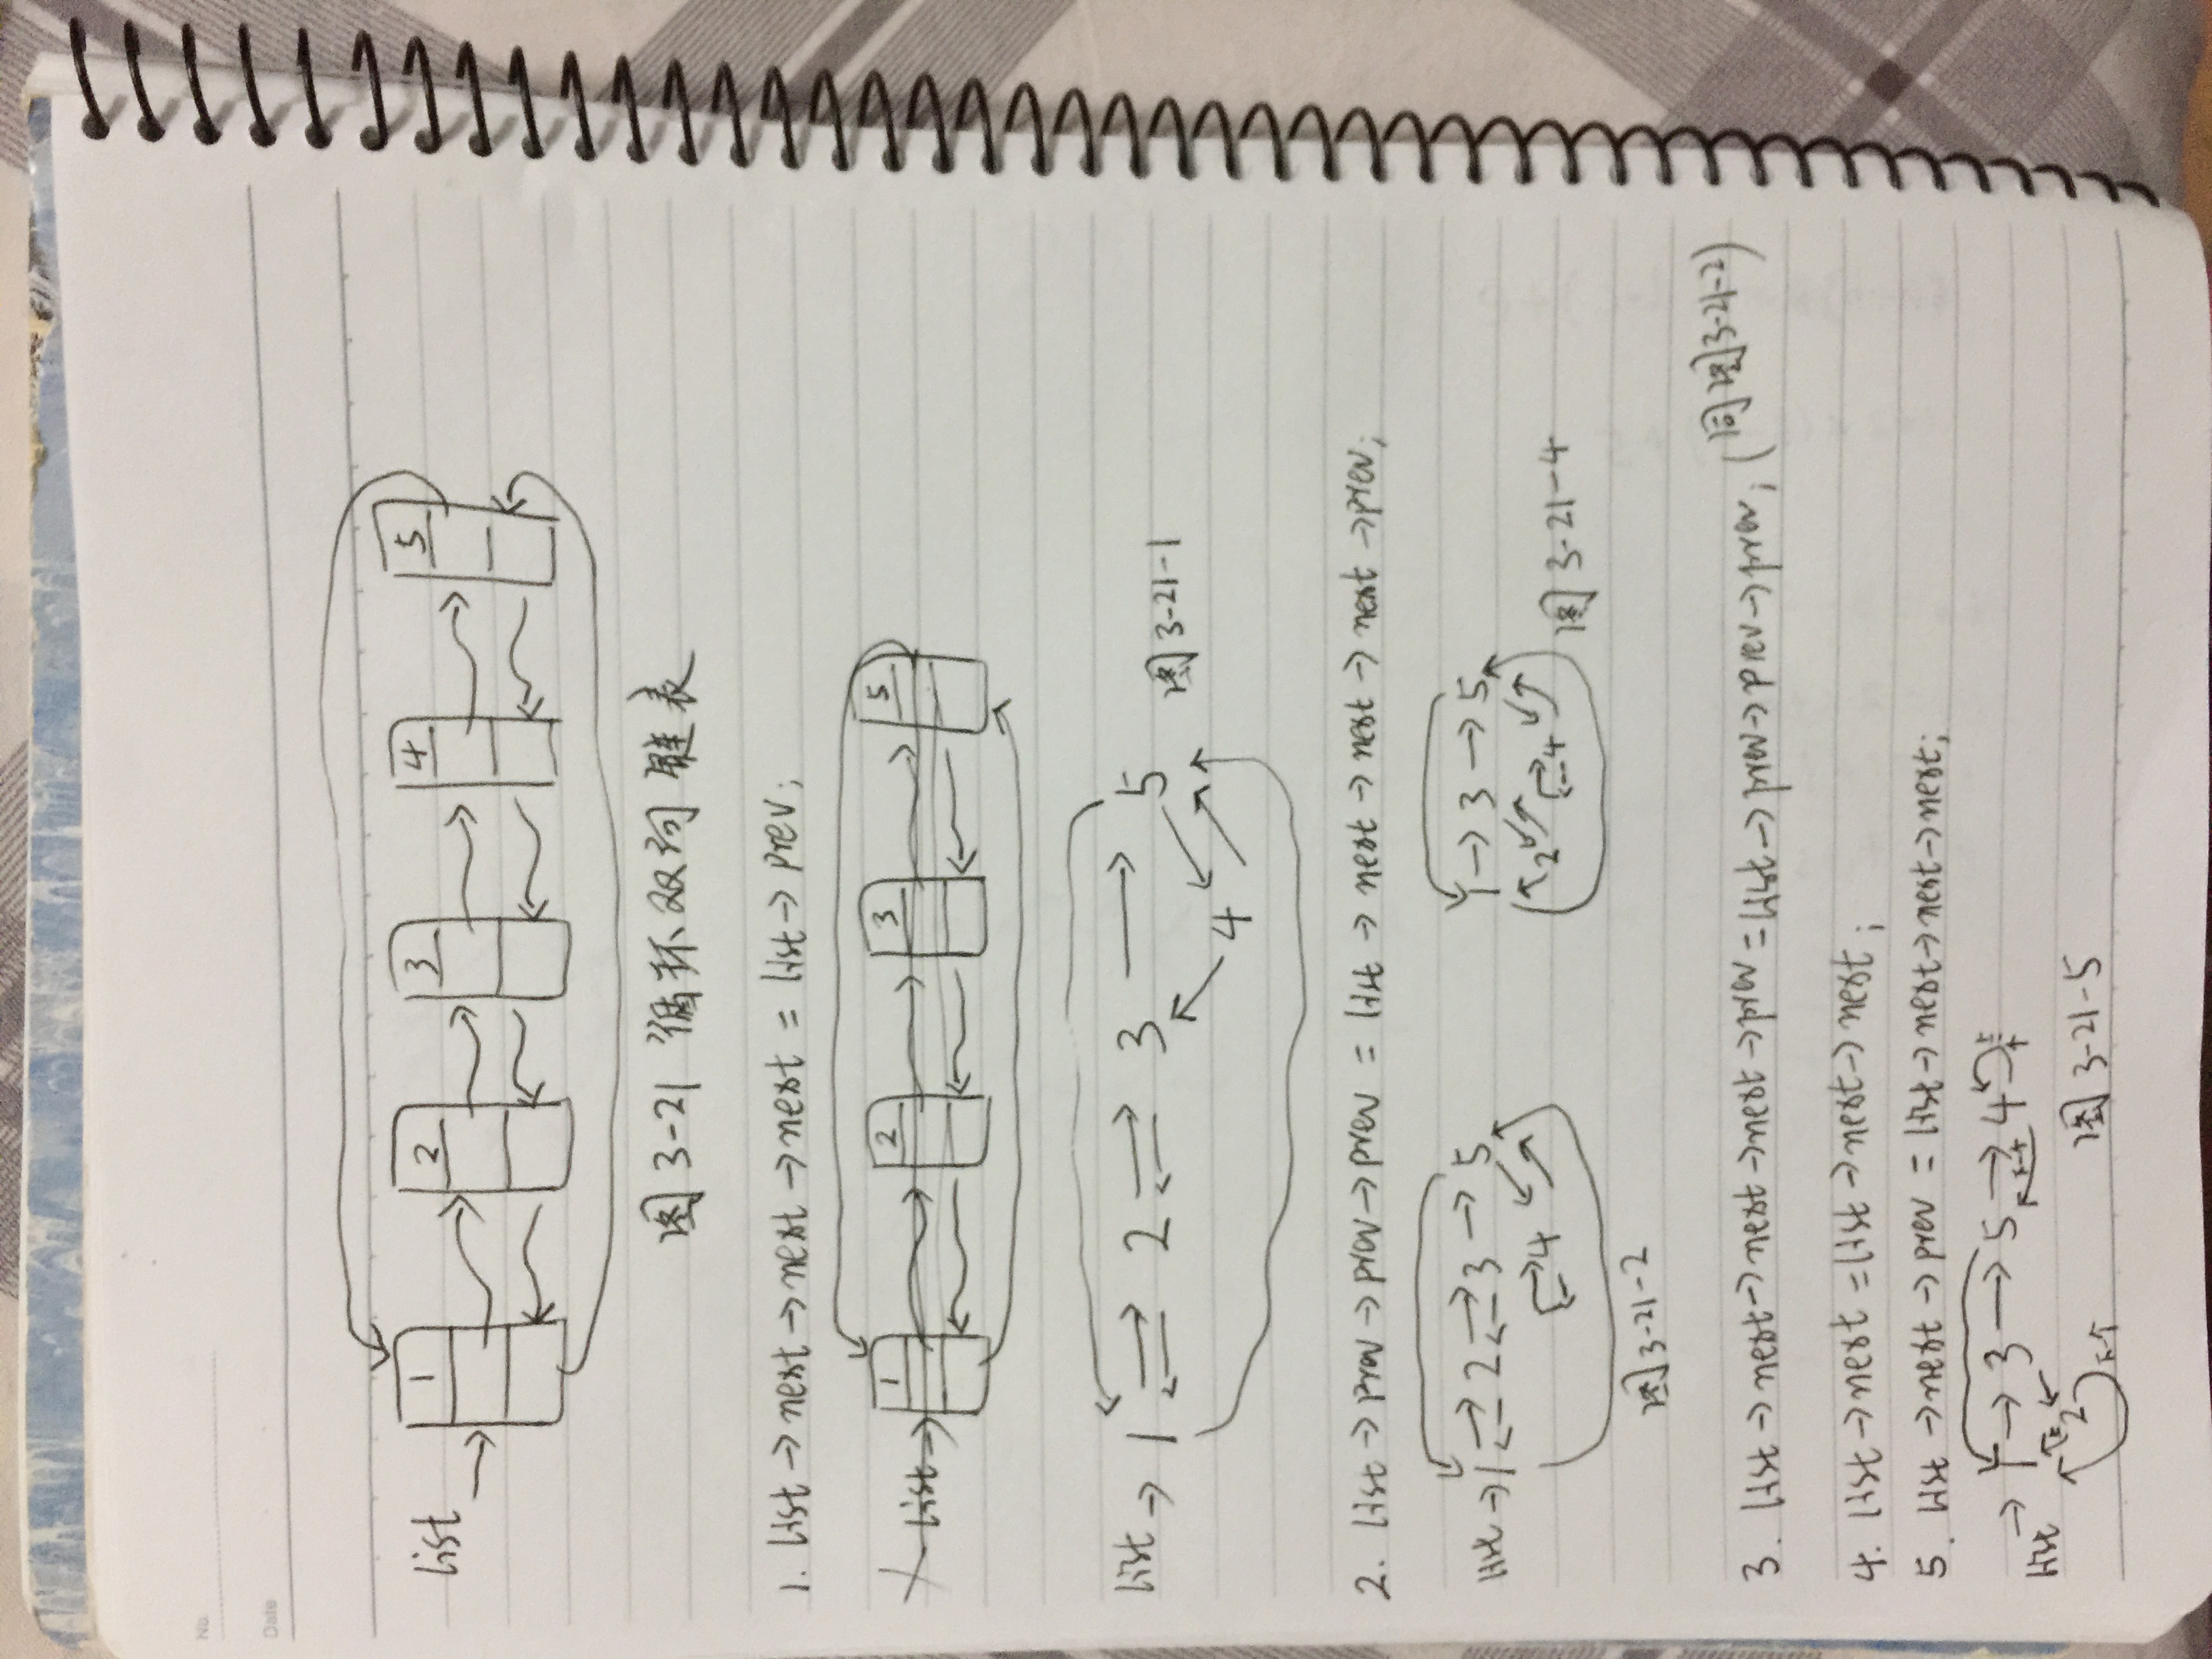 No.
Date
list → 1 2 3 4 5
图 3-21 循环双向链表
1. list → next → next → next = list → prev;
list → 1 2 3 5
list → 1 2 3 5 图 3-21-1
4
2. list → prev → prev → prev = list → next → next → next → prev;
list → 1 2 3 → 5 1 → 3 → 5
4 2 4 图 3-21-4
图 3-21-2
3. list → next → next → next → prev = list → prev → prev → prev; (同图 3-21-2)
4. list → next = list → next → next;
5. list → next → prev = list → next → next → next;
list → 1 → 3 → 5 → 4
2 图 3-21-5